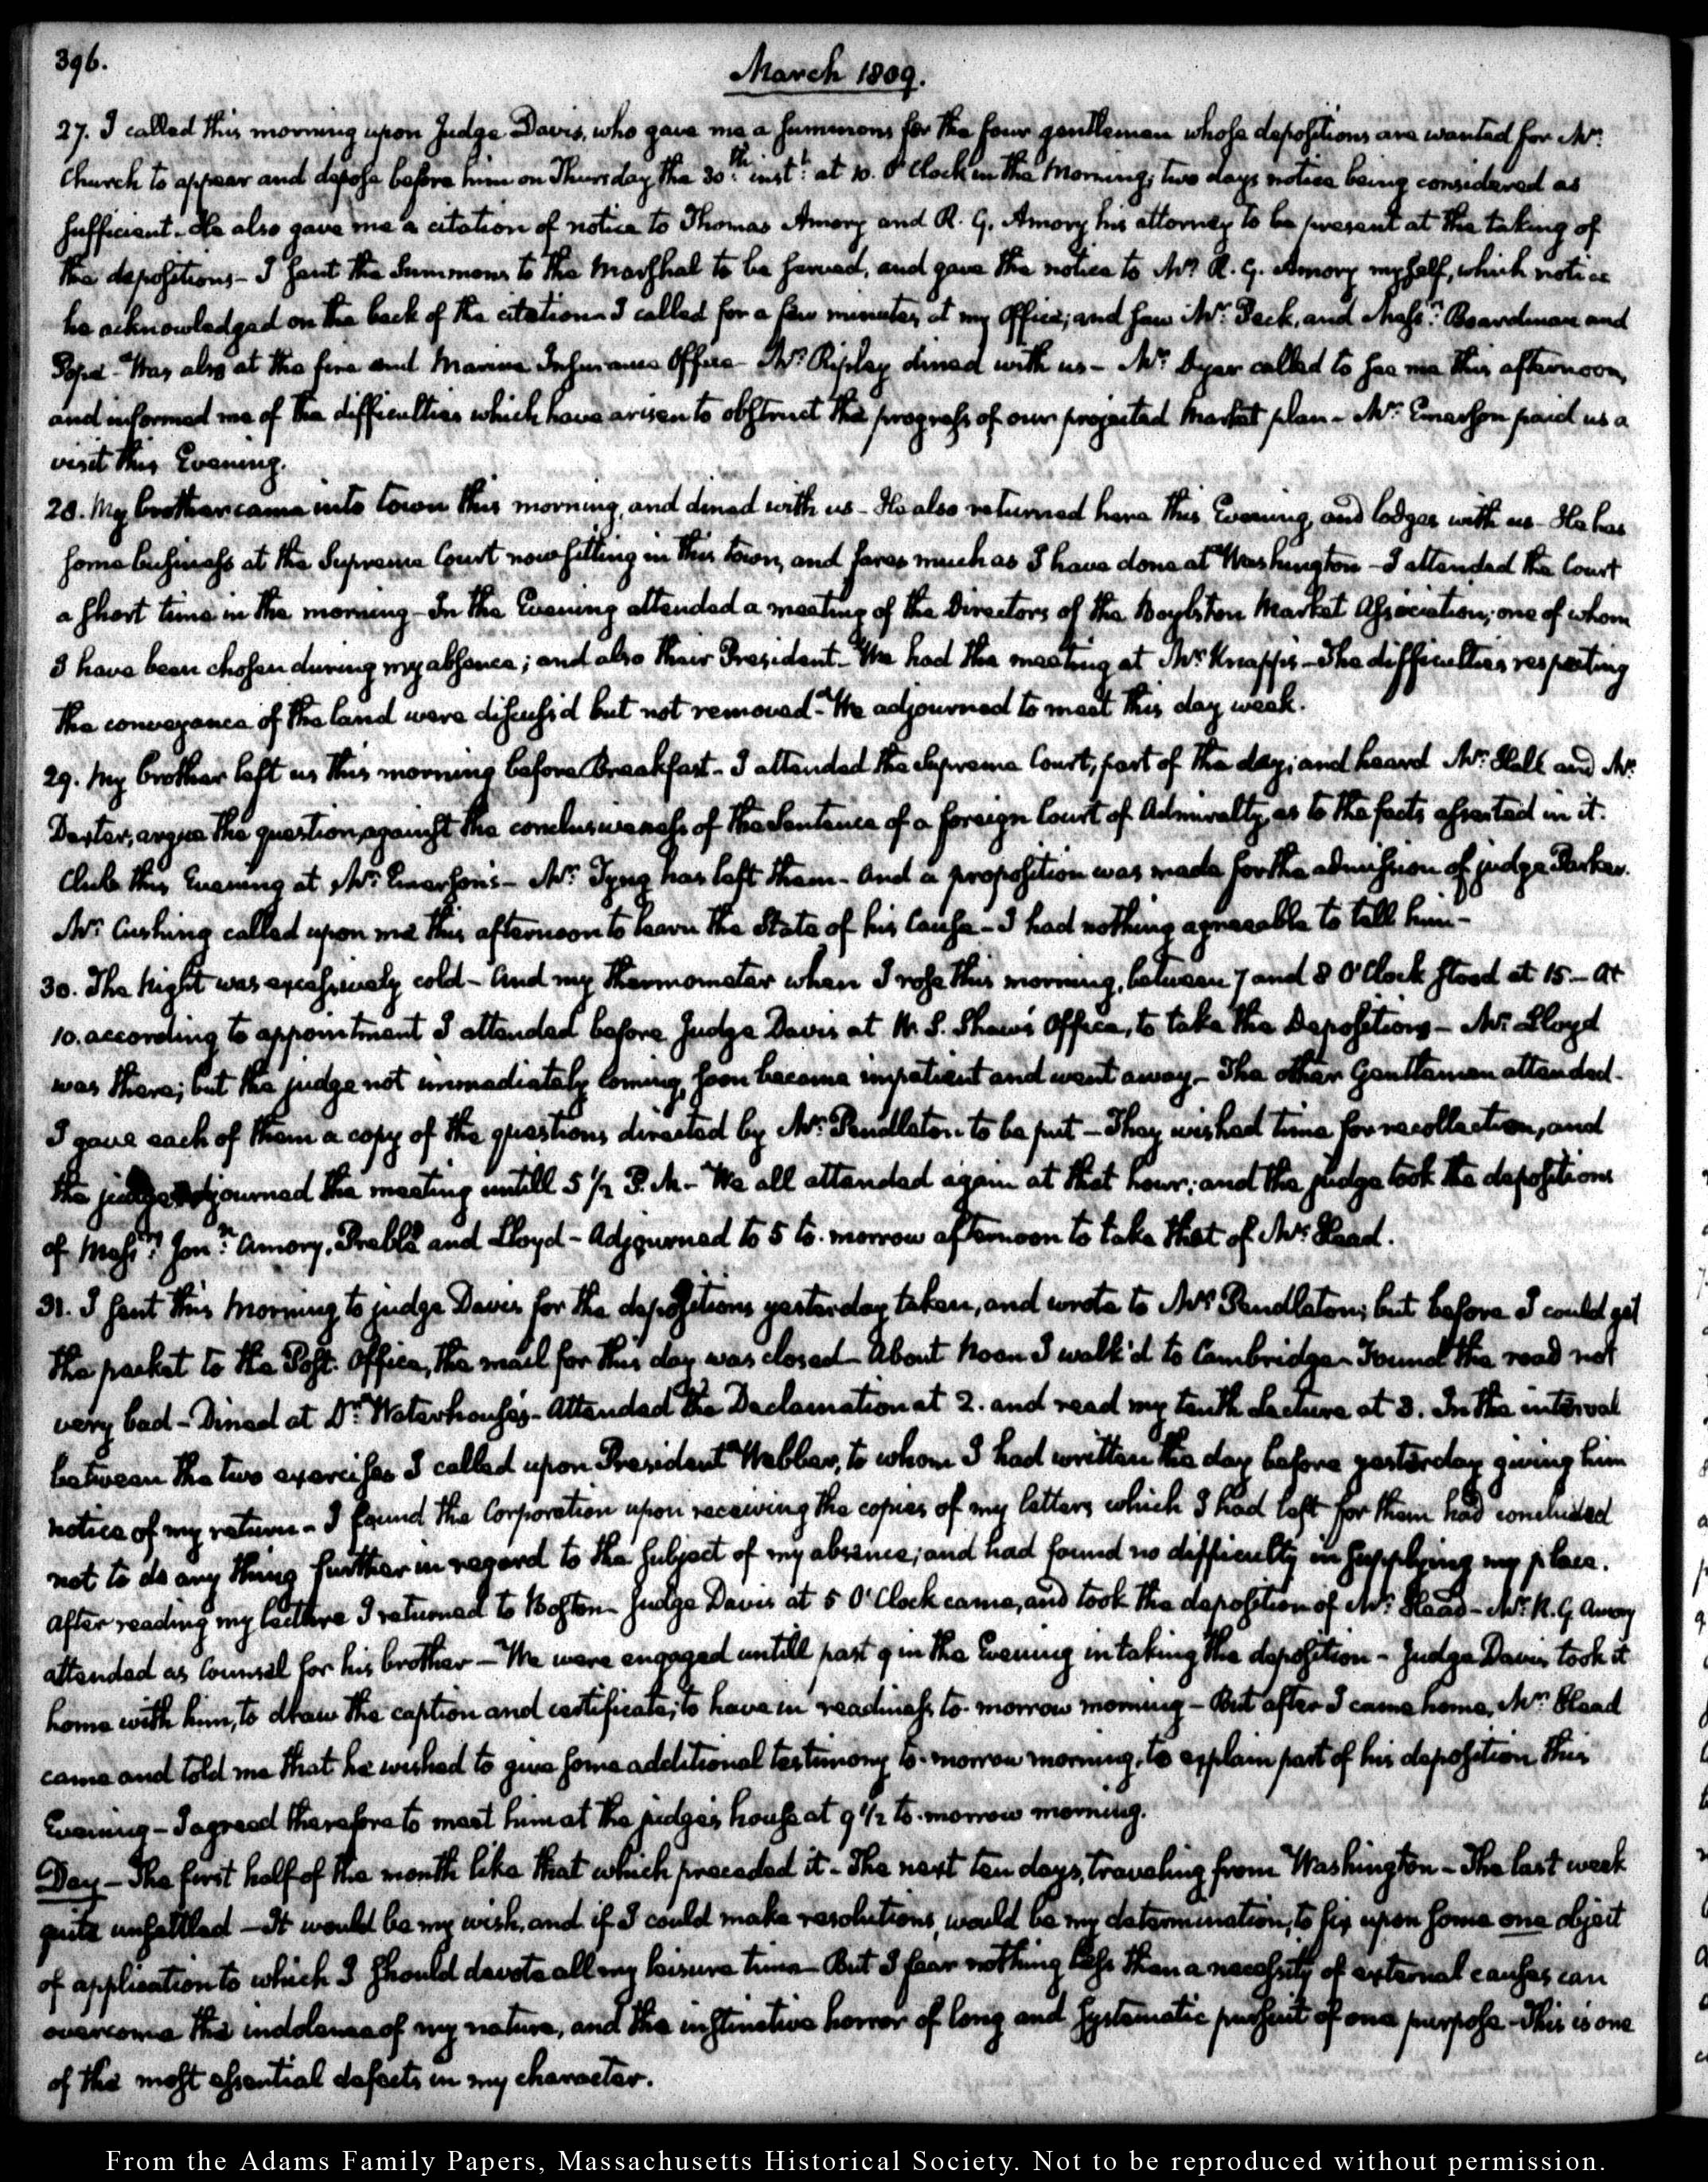 396.
March 1809.
27. I called this morning upon Judge Davis, who gave me a summons for the four gentlemen whose depositions are wanted for Mr.
Church to appear and depose before him on Thursday the 30th. instt. at 10. O'Clock in the Morning; two days notice being considered as
sufficient. He also gave me a citation of notice to Thomas Amory and R. G. Amory his attorney to be present at the taking of
the depositions- I sent the Summons to the Marshal to be served, and gave the notice to Mr. R. G. Amory myself, which notice
he acknowledged on the back of the citation- I called for a few minutes, at my Office; and saw Mr. Peck, and Messrs. Boardman and
Pope- Was also at the fire and Marine Insurance Office- Mr. Ripley dined with us- Mr. Dyer called to see me this afternoon,
and informed me of the difficulties which have arisen to obstruct the progress of our projected Market plan- Mr. Emerson paid us a
visit this Evening.
28. My brother came into town this morning, and dined with us- He also returned here this Evening, and lodges with us- He has
some business at the Supreme Court now sitting in this town, and fares much as I have done at Washington- I attended the Court
a short time in the morning- In the Evening attended a meeting of the Directors of the Boylston Market Association; one of whom
I have been chosen during my absence; and also their President- We had the meeting at Mr. Knapp's- The difficulties respecting
the conveyance of the land were discuss'd but not removed- We adjourned to meet this day week.
29. My brother left us this morning before Breakfast- I attended the Supreme Court, part of the day; and heard Mr. Hall and Mr.
Dexter, argue the question, against the conclusiveness of the Sentence of a foreign Court of Admiralty, as to the facts asserted in it.
Club this Evening at Mr. Emerson's- Mr. Tyng has left them- And a proposition was made for the admission of judge Parker.
Mr. Cushing called upon me this afternoon to learn the State of his Cause- I had nothing agreeable to tell him-
30. The Night was excessively cold- And my thermometer when I rose this morning, between 7 and 8 O'Clock stood at 15- At
10. according to appointment I attended before Judge Davis at W. S. Shaw's Office, to take the Depositions- Mr. Lloyd
was there; but the judge not immediately coming, soon became impatient and went away- The other Gentlemen attended-
I gave each of them a copy of the questions directed by Mr. Pendleton to be put- They wished time for recollection, and
the judge adjourned the meeting untill 5 1/2 P.M.- We all attended again at that hour; and the judge took the depositions
of Messrs. Jonn. Amory, Preble and Lloyd- Adjourned to 5 to-morrow afternoon to take that of Mr. Head.
31. I sent this Morning to judge Davis for the depositions yesterday taken, and wrote to Mr. Pendleton; but before I could get
the packet to the Post-Office, the mail for this day was closed- About Noon I walk'd to Cambridge- Found the road not
very bad- Dined at Dr. Waterhouse's- Attended the Declamation at 2. and read my tenth Lecture at 3. In the interval
between the two exercises I called upon President Webber, to whom I had written the day before yesterday giving him
notice of my return- I found the Corporation upon receiving the copies of my letters which I had left for them had concluded
not to do any thing further in regard to the subject of my absence; and had found no difficulty in supplying my place.
After reading my lecture I returned to Boston- Judge Davis at 5 O'Clock came, and took the deposition of Mr. Head- Mr. R. G. Amory
attended as Counsel for his brother- We were engaged untill past 9 in the Evening in taking the deposition- Judge Davis took it
home with him, to draw the caption and certificate; to have in readiness to-morrow morning- But after I came home, Mr. Head
came and told me that he wished to give some additional testimony to-morrow morning, to explain part of his deposition this
Evening- I agreed therefore to meet him at the judge's house at 9 1/2 to-morrow morning.
Day- The first half of the month like that which preceded it- The next ten days, traveling from Washington- The last week
quite unsettled- It would be my wish, and if I could make resolutions, would be my determination, to fix upon some one object
of application to which I should devote all my leisure time- But I fear nothing less than a necessity of external causes can
overcome the indolence of my nature, and the instinctive horror of long and systematic pursuit of one purpose- This is one
of the most essential defects in my character.
From the Adams Family Papers, Massachusetts Historical Society. Not to be reproduced without permission.